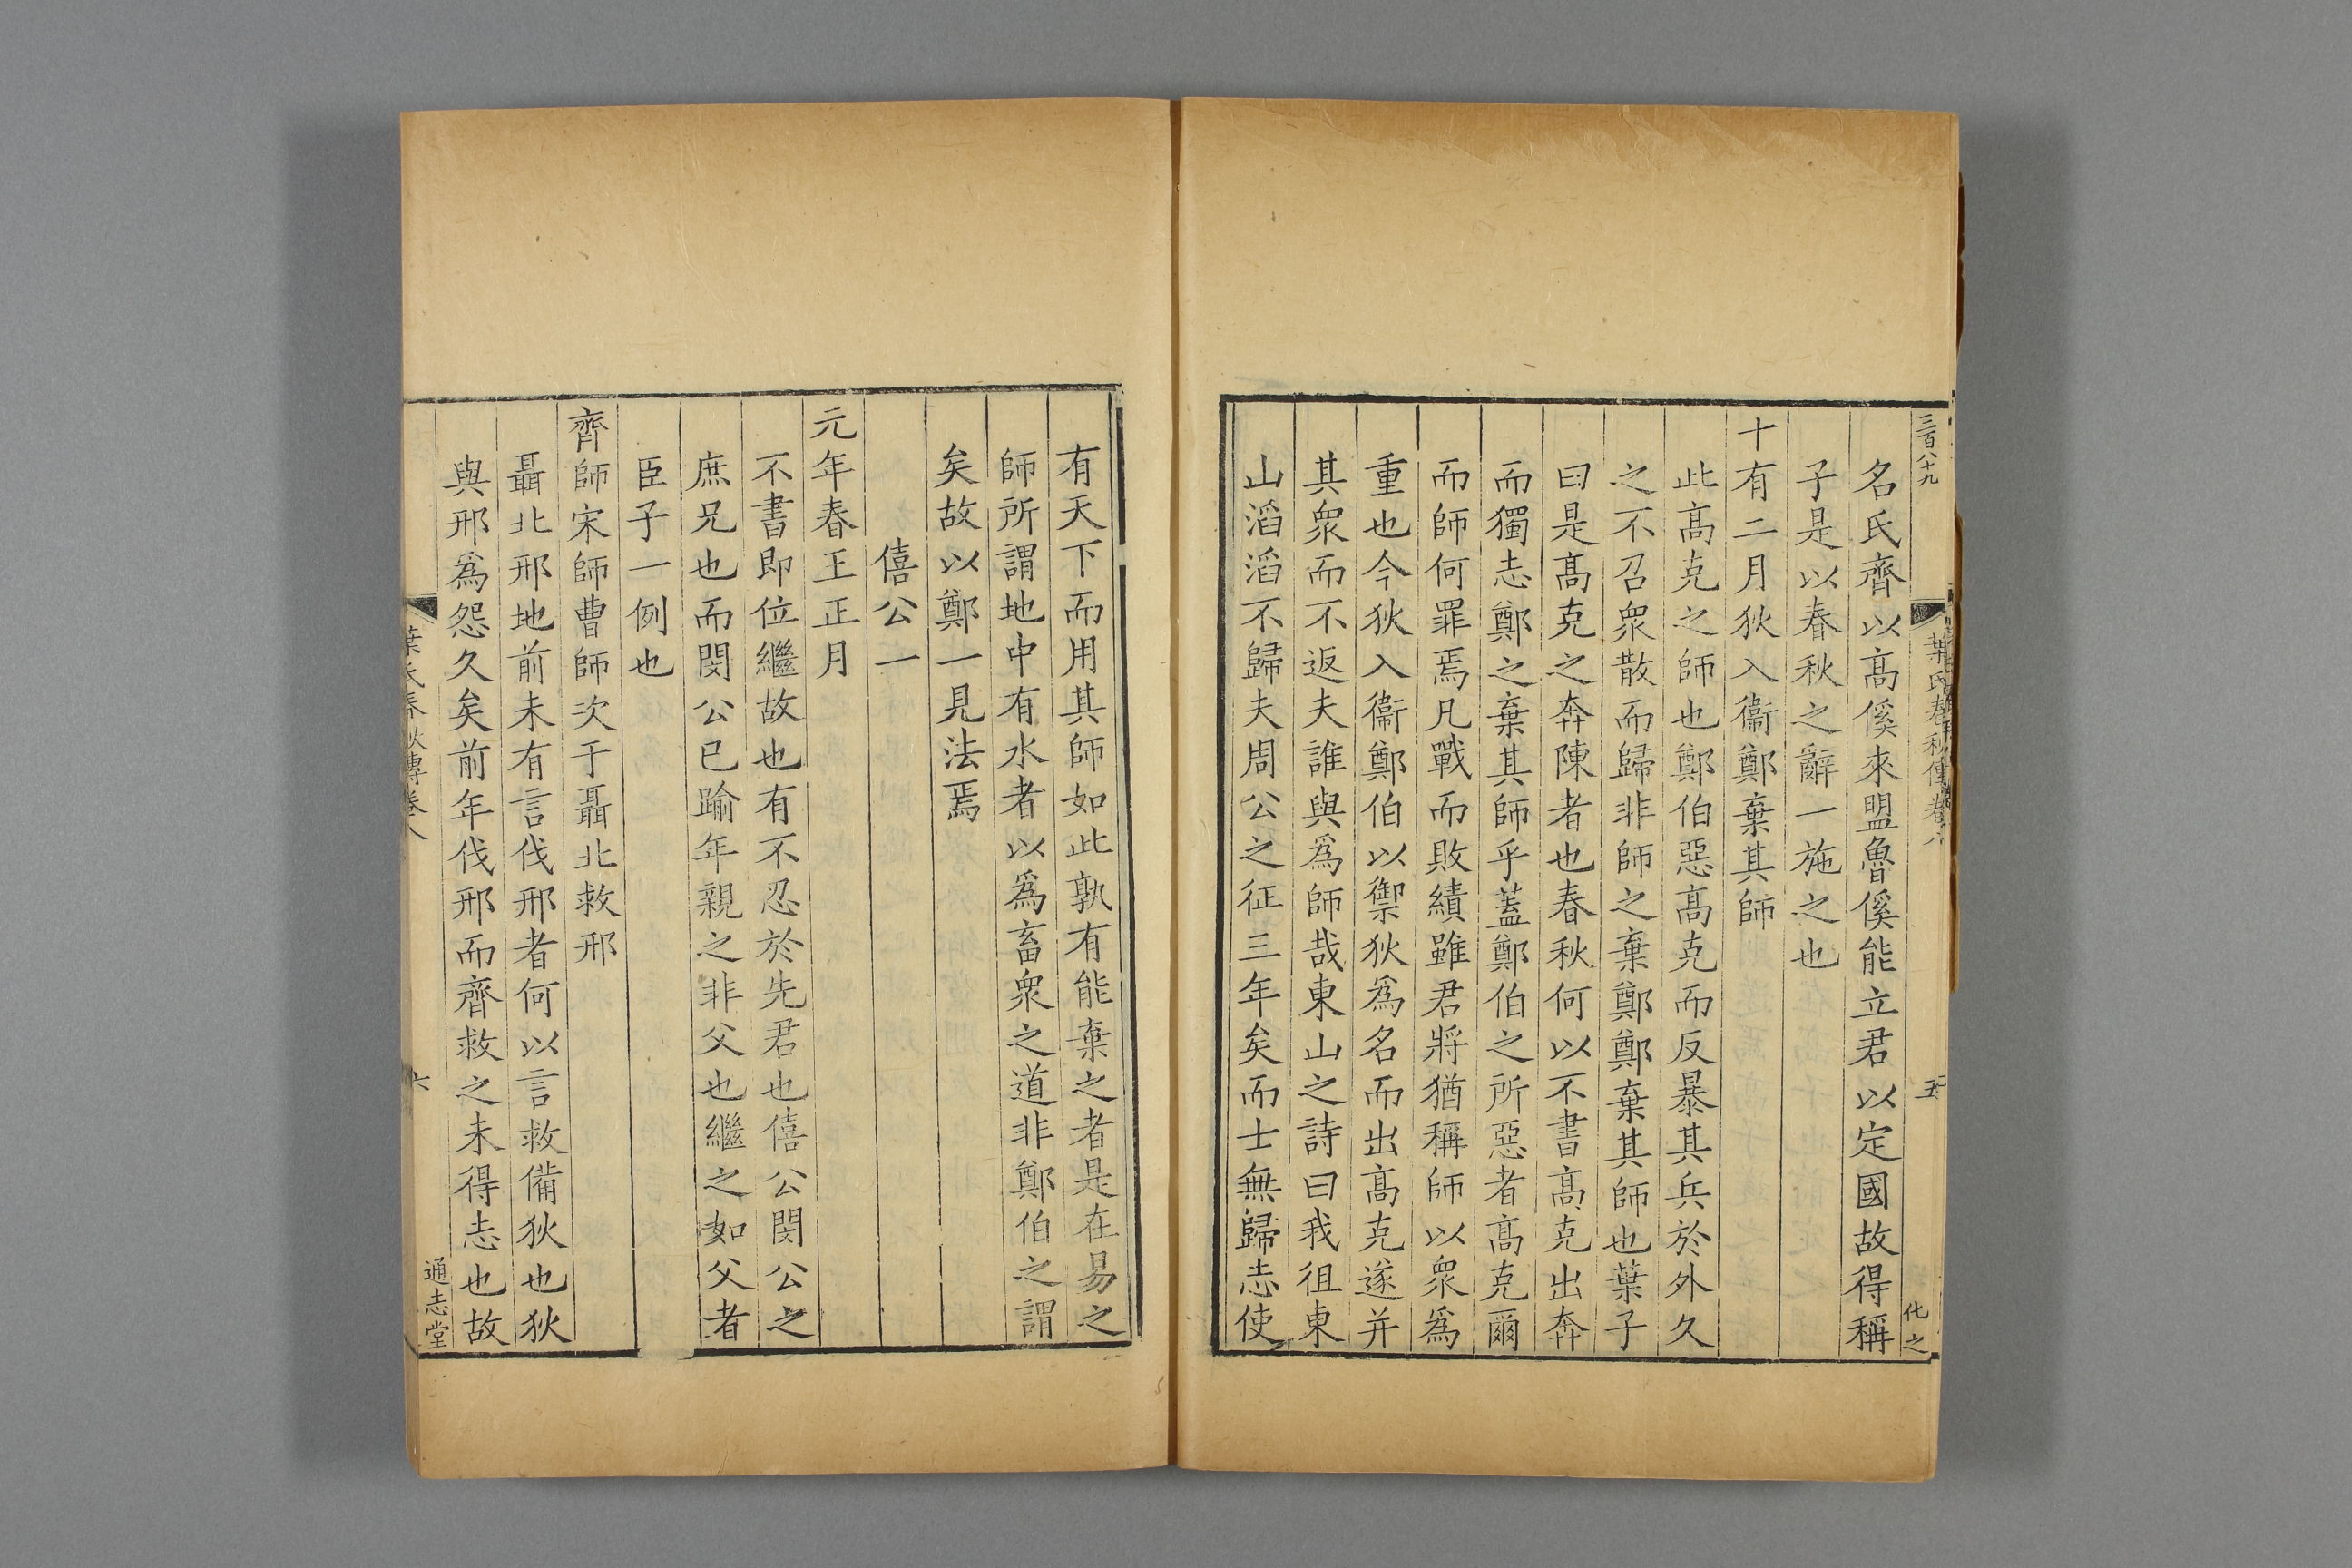 三百八十九
葉氏春秋傳卷八
五
化之
名氏齊以髙傒來盟魯傒能立君以定國故得稱
子是以春秋之辭一施之也
十有二月狄入衞鄭棄其師
此髙克之師也鄭伯惡髙克而反暴其兵於外久
之不召衆散而歸非師之棄鄭鄭棄其師也葉子
曰是髙克之奔陳者也春秋何以不書髙克出奔
而獨志鄭之棄其師乎蓋鄭伯之所惡者髙克爾
而師何罪焉凡戰而敗績雖君將猶稱師以衆爲
重也今狄入衞鄭伯以禦狄爲名而出髙克遂并
其衆而不返夫誰與爲師哉東山之詩曰我徂東
山滔滔不歸夫周公之征三年矣而士無歸志使
有天下而用其師如此孰有能棄之者是在易之
師所謂地中有水者以爲畜衆之道非鄭伯之謂
矣故以鄭一見法焉
僖公一
元年春王正月
不書即位繼故也有不忍於先君也僖公閔公之
庶兄也而閔公已踰年親之非父也繼之如父者
臣子一例也
齊師宋師曹師次于聶北救邢
聶北邢地前未有言伐邢者何以言救備狄也狄
與邢爲怨久矣前年伐邢而齊救之未得志也故
葉氏春秋傳卷八
六
通志堂